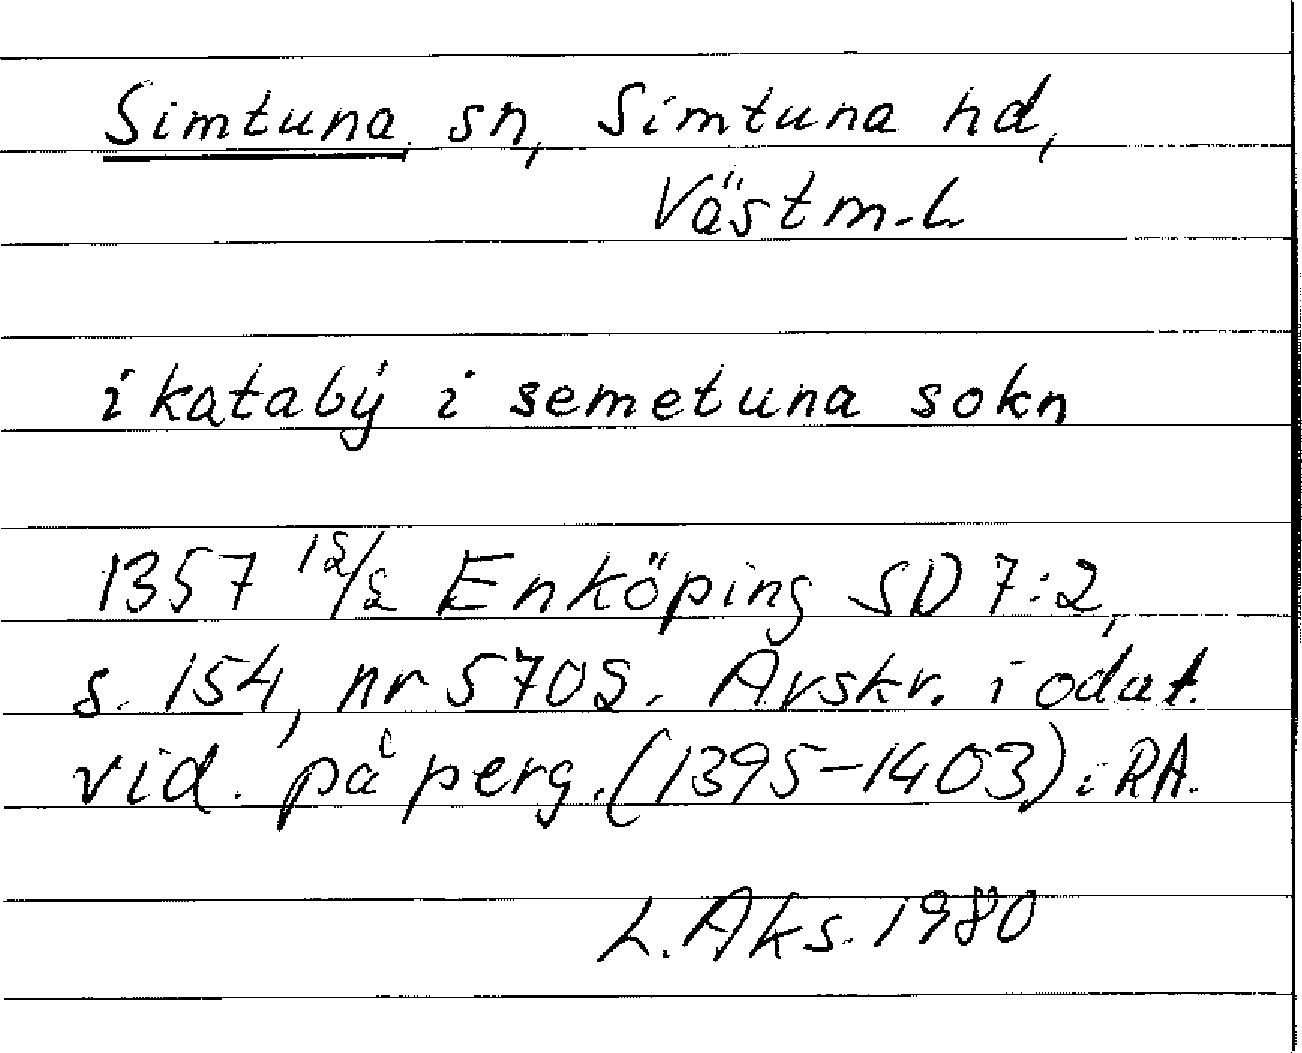 Simtuna sn, Simtuna hd,
Västm. L
i katabÿ i semetuna sokn
1357 12/2 Enköping SD 7:2,
s. 154, nr 5702. Avskr. i odat.
vid. på perg. (1395-1403) i RA.
L. Aks. 1980